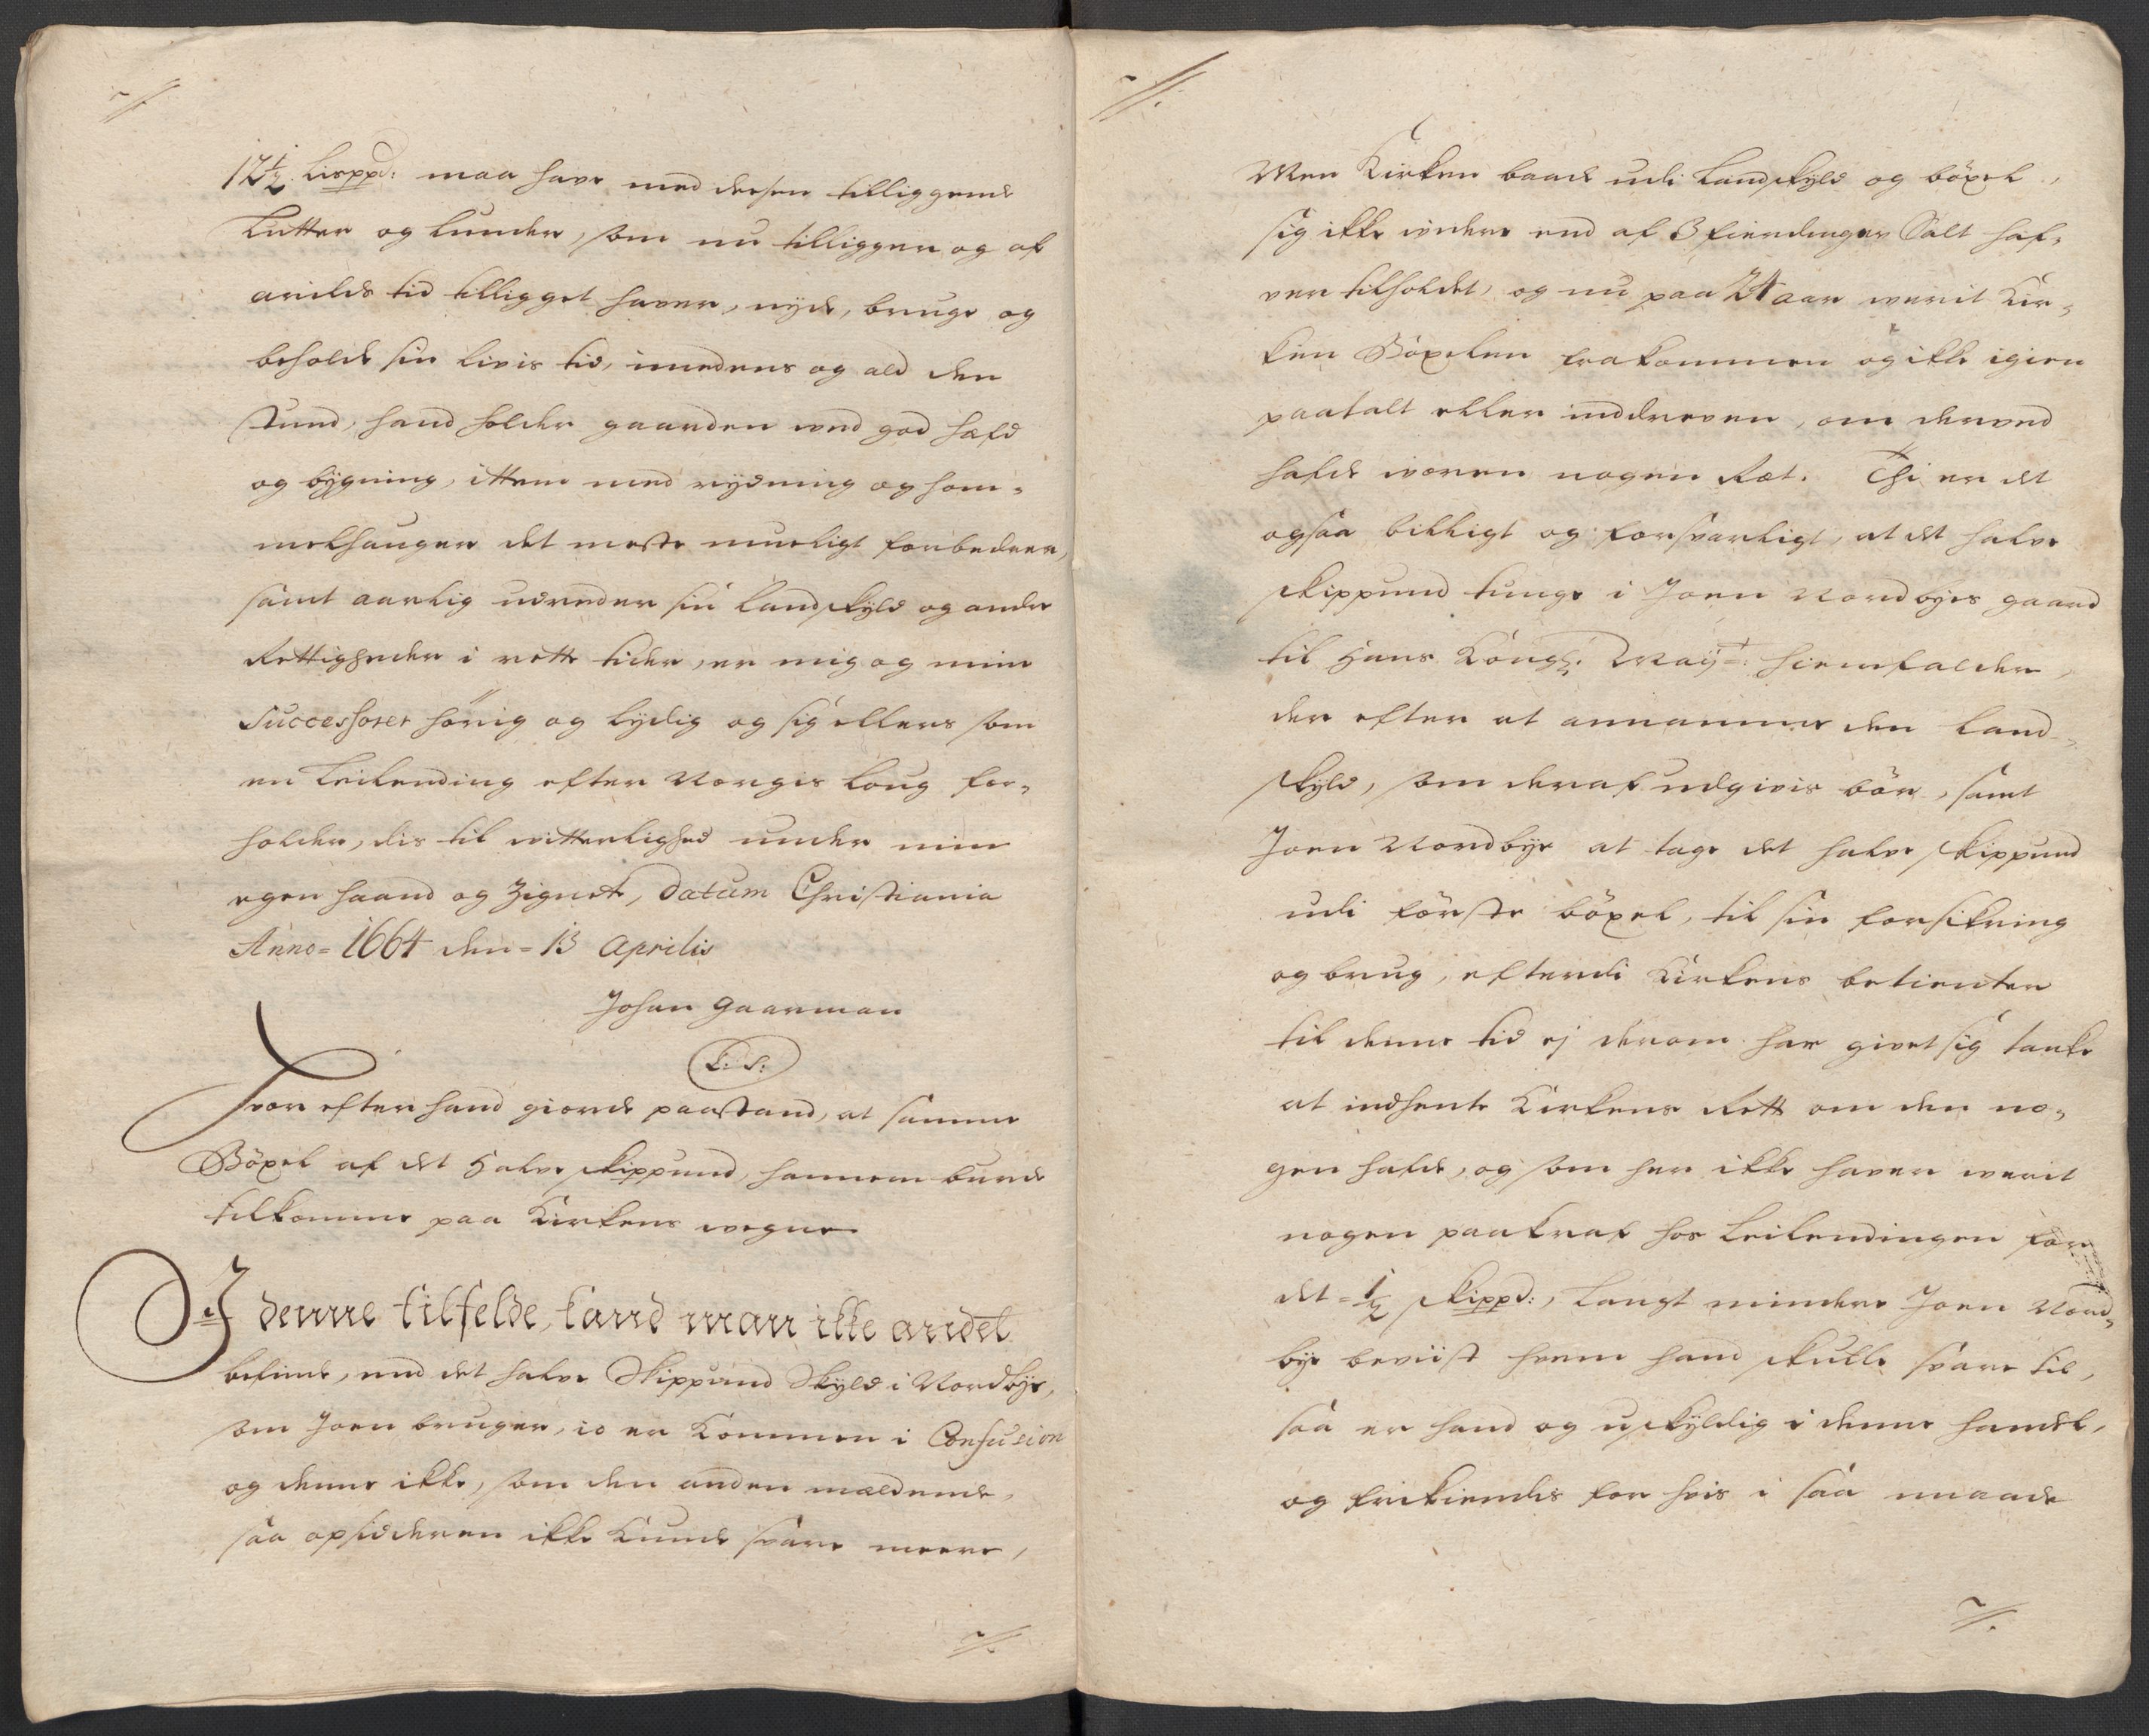 12½ Lisppd: maa have med dessen tilliggende
Lutter og Lunder, som nu tilligger og af
arilds tid tilligget haver, nyde, bruge og
beholde sin livis tid, imedens og ald den
stund, hand holder gaarden ved god hæfd
og bygning, ittem med rydning og hom-
melhauger det meste mueligt forbedrer,
samt aarlig udreder sin Landskyld og andre
Rettigheder i rette tider, er mig og mine
Successorer hørig og lydig og sig ellers som
en Leilending efter Norges Loug for-
holder, dis til vitterlighed under min
egen haand og Zignet, Datum Christiania
Anno= 1664 den= 13 Aprilis
Johan Gaarman
L: S:
Hvor efter hand giorde paastand, at samme
Böxel af det halve skippund, hannem burde
tilkomme paa Kirkens vegne
I denne tilfelde, kand man ikke andet
befinde, end det halve Skippund Skyld i Nordbye,
som Joen bruger, io er kommen i Confusion
og denne ikke, som den anden meldende,
saa opsidderen ikke kunde svare meere,
Men Kirken baade udi Landskyld og böxel,
sig ikke videre end af 3 fierdinger Salt haf-
ver tilholdet, og nu paa 24 aar verit Kir-
ken Böxelen frakommen og ikke igien
paatalt eller inddreven, om derved
hafde været nogen Ret. Thi er det
ogsaa billigt og forsvarligt, at det halve
skippund tunge i Joen Nordbyes gaard
til Hans Kongl: May:t hiemfalder,
der efter at annamme den Land-
skyld, som deraf udgives bör, samt
Joen Nordbye at tage det halve skippund
udi förste böxel, til sin forsikring
og brug, efterdi Kirkens betienter
til denne tid ej derom har givet sig tanke
at indhente Kirkens Rett om den no-
gen hafde, og som her ikke haver verit
nogen paakraf hos Leilendingen for
det= ½ skippd:, langt mindre Joen Nord-
bye beviist hvem hand skulle svare til,
saa er hand og uskyldig i denne handel,
og frikiendes for hvis i saa maade